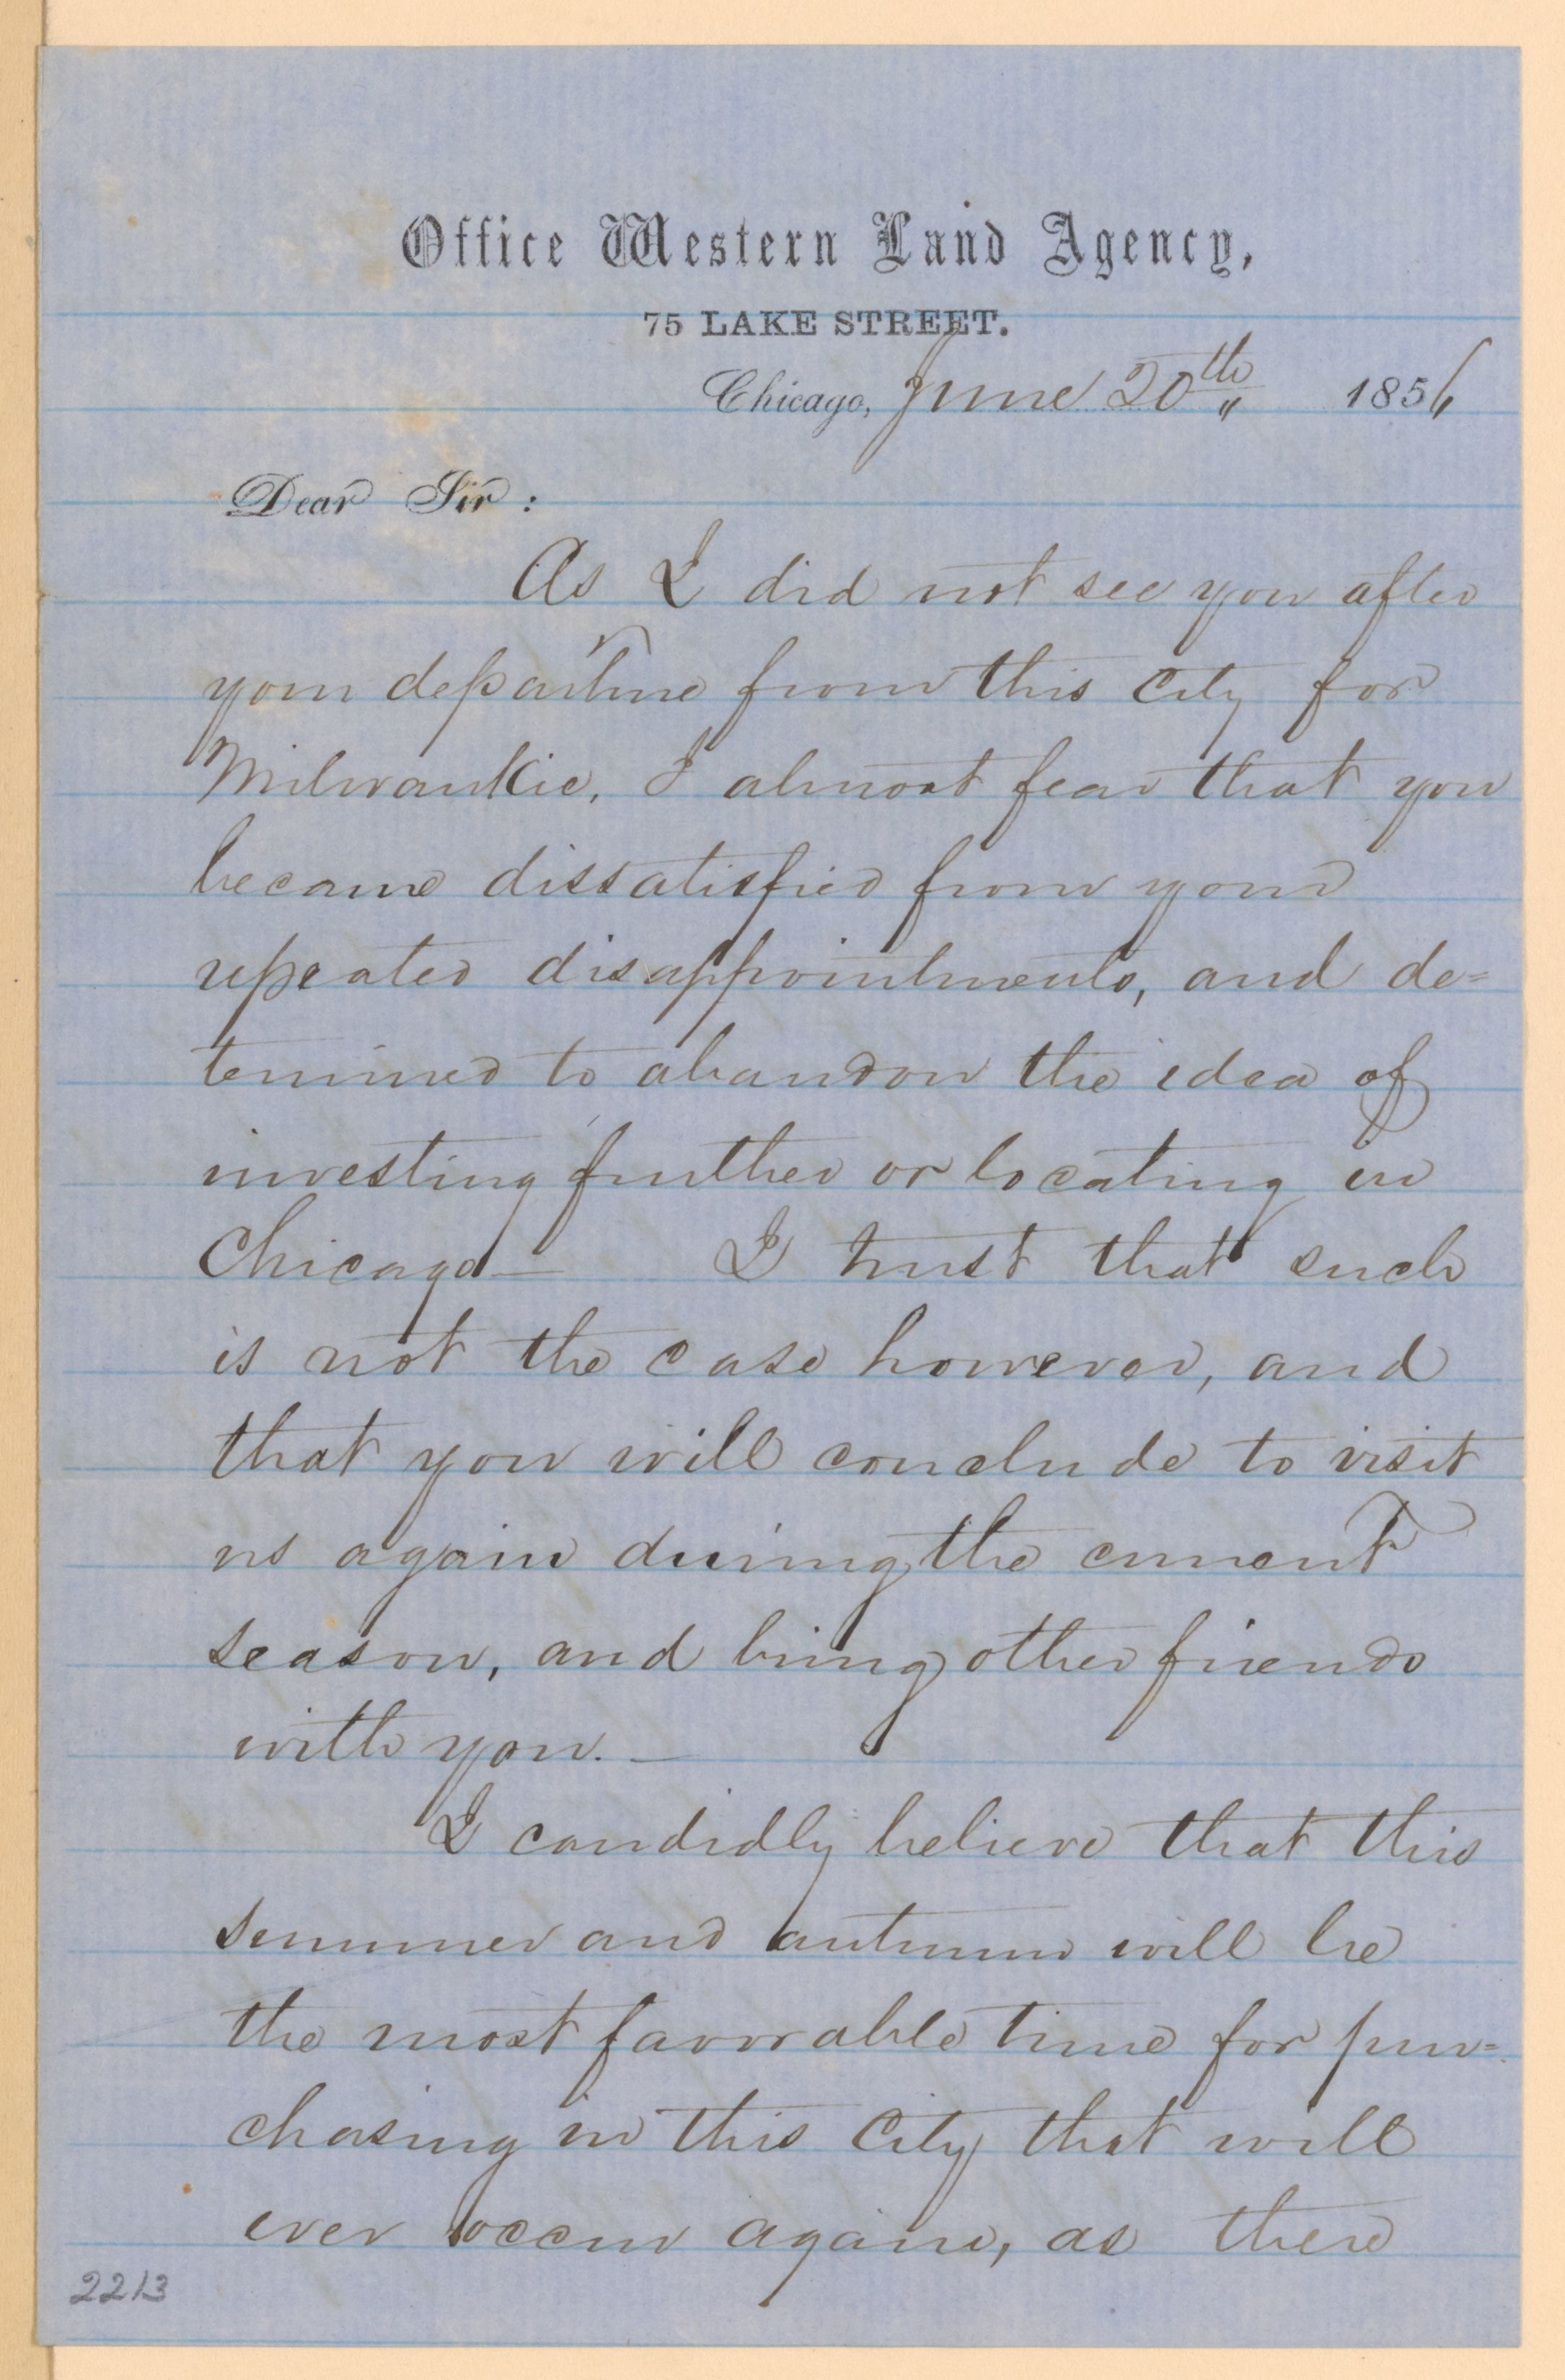 Office Western Land Agency,
75 LAKE STREET.
Chicago, June 20th 1856
Dear Sir :
As I did not see you after
your departure from this city for
Milwaukie, I almost fear that you
became dissatisfied from your
repeated disappointments, and de=
termined to abandon the idea of
investing further or locating in
Chicago — I trust that such
is not the case however, and
that you will conclude to visit
us again during the current
season, and bring other friends
with you. —
I candidly believe that this
summer and autumn will be
the most favorable time for pur=
chasing in this City that will
ever occur again, as there
2213